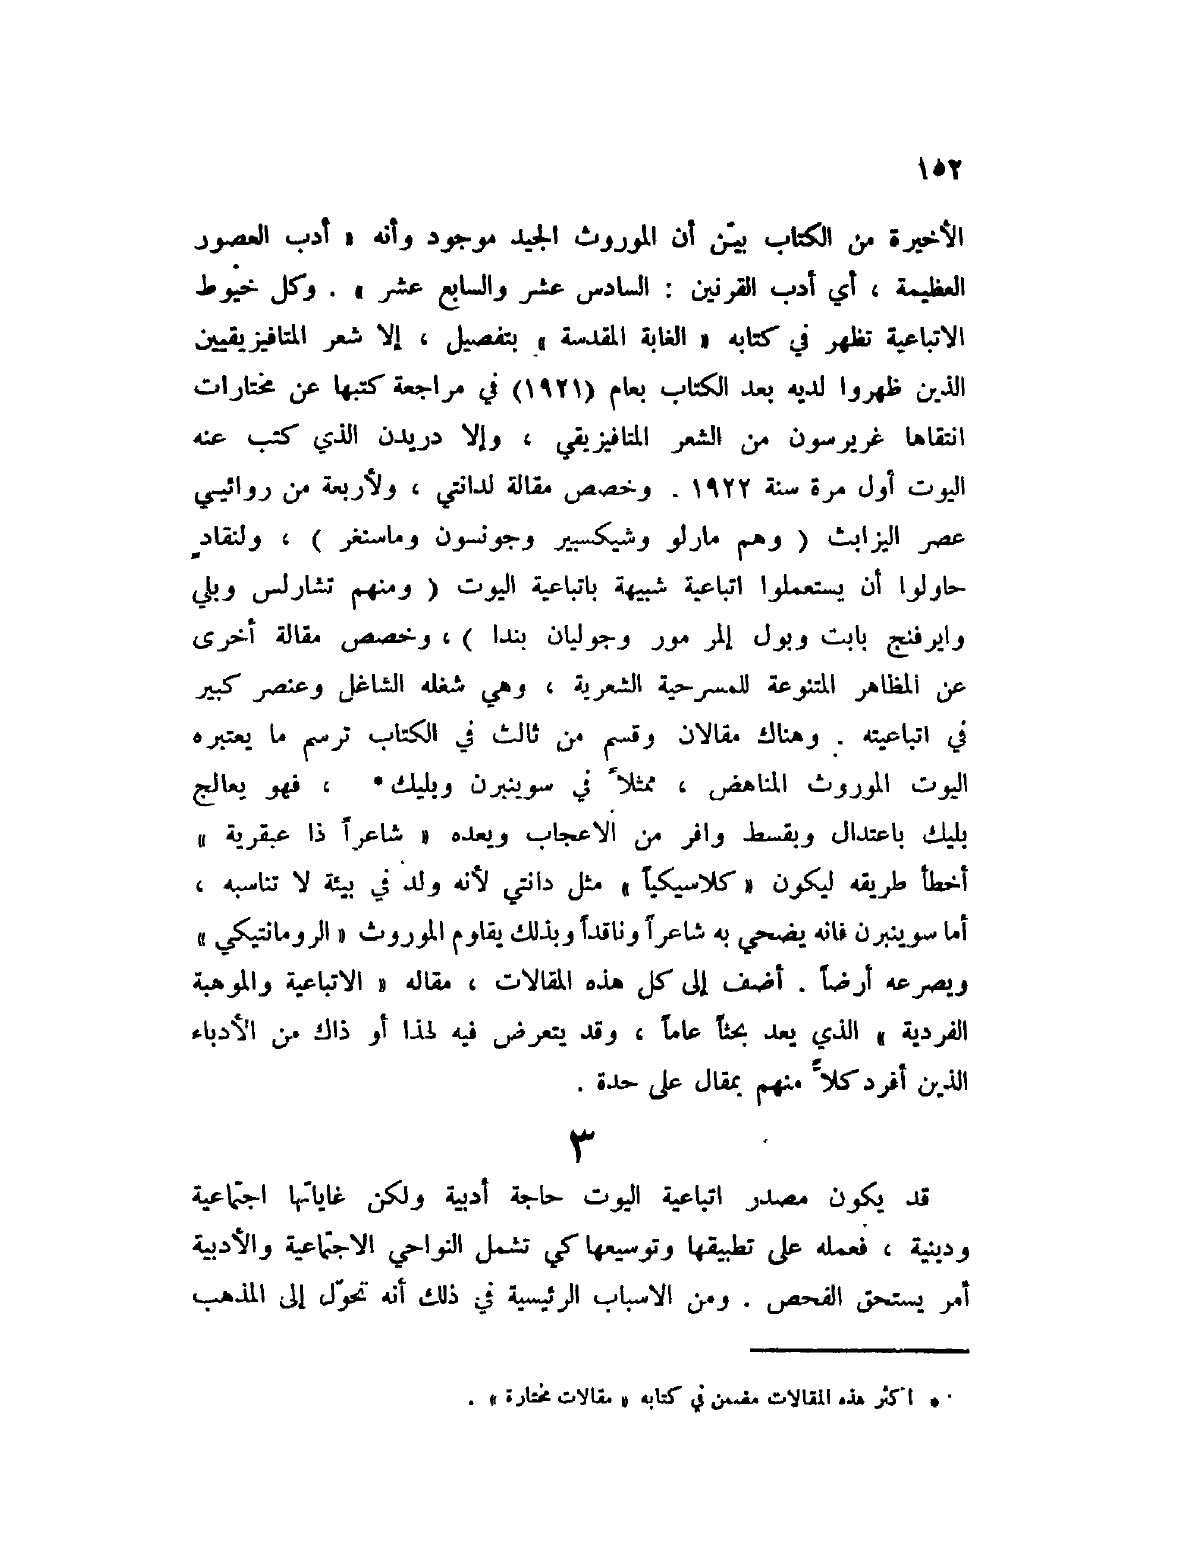 ١٥٢
الأخيرة من الكتاب بيّن أن الموروث الجيد موجود وأنه « أدب العصور
العظيمة ، أي أدب القرنين : السادس عشر والسابع عشر » . وكل خيوط
الاتباعية تظهر في كتابه « الغابة المقدسة » بتفصيل ، إلا شعر المتافيزيقيين
الذين ظهروا لديه بعد الكتاب بعام (١٩٢١) في مراجعة كتبها عن مختارات
انتقاها غريرسون من الشعر المتافيزيقي ، وإلا دريدن الذي كتب عنه
اليوت أول مرة سنة ١٩٢٢ . وخصص مقالة لدانتي ، ولأربعة من روائيي
عصر اليزابث ( وهم مارلو وشيكسبير وجونسون وماسنغر ) ، ولنقادٍ
حاولوا أن يستعملوا اتباعية شبيهة باتباعية اليوت ( ومنهم تشارلس وبلي
وايرفنج بابت وبول إلمر مور وجوليان بندا ) ، وخصص مقالة أخرى
عن المظاهر المتنوعة للمسرحية الشعرية ، وهي شغله الشاغل وعنصر كبير
في اتباعيته . وهناك مقالان وقسم من ثالث في الكتاب ترسم ما يعتبره
اليوت الموروث المناهض ، ممثلاً في سوينبرن وبليك * ، فهو يعالج
بليك باعتدال وبقسط وافر من الاعجاب ويعده « شاعراً ذا عبقرية »
أخطأ طريقه ليكون « كلاسيكياً » مثل دانتي لأنه ولد في بيئة لا تناسبه ،
أما سوينبرن فانه يضحي به شاعراً وناقداً وبذلك يقاوم الموروث « الرومانتيكي »
ويصرعه أرضاً . أضف إلى كل هذه المقالات ، مقاله « الاتباعية والموهبة
الفردية » الذي يعد بحثاً عاماً ، وقد يتعرض فيه لهذا أو ذاك من الأدباء
الذين أفرد كلاًّ منهم بمقال على حدة .
٣
قد يكون مصدر اتباعية اليوت حاجة أدبية ولكن غاياتها اجتماعية
ودينية ، فعمله على تطبيقها وتوسيعها كي تشمل النواحي الاجتماعية والأدبية
أمر يستحق الفحص . ومن الاسباب الرئيسية في ذلك أنه تحوّل إلى المذهب
* اكثر هذه المقالات مضمن في كتابه « مقالات مختارة » .